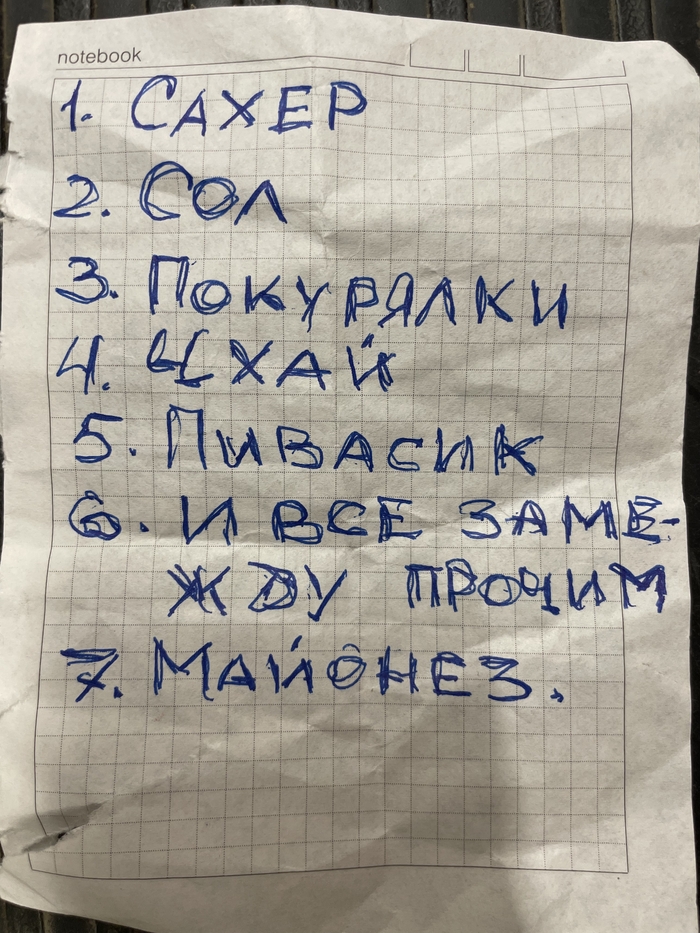 notebook
1. САХЕР
2. СОЛ
3. ПОКУРЯЛКИ
4. ЧХАЙ
5. ПИВАСИК
6. И ВСЕ ЗАМЕ-
ЖДУ ПРОЧИМ
7. МАЙОНЕЗ.